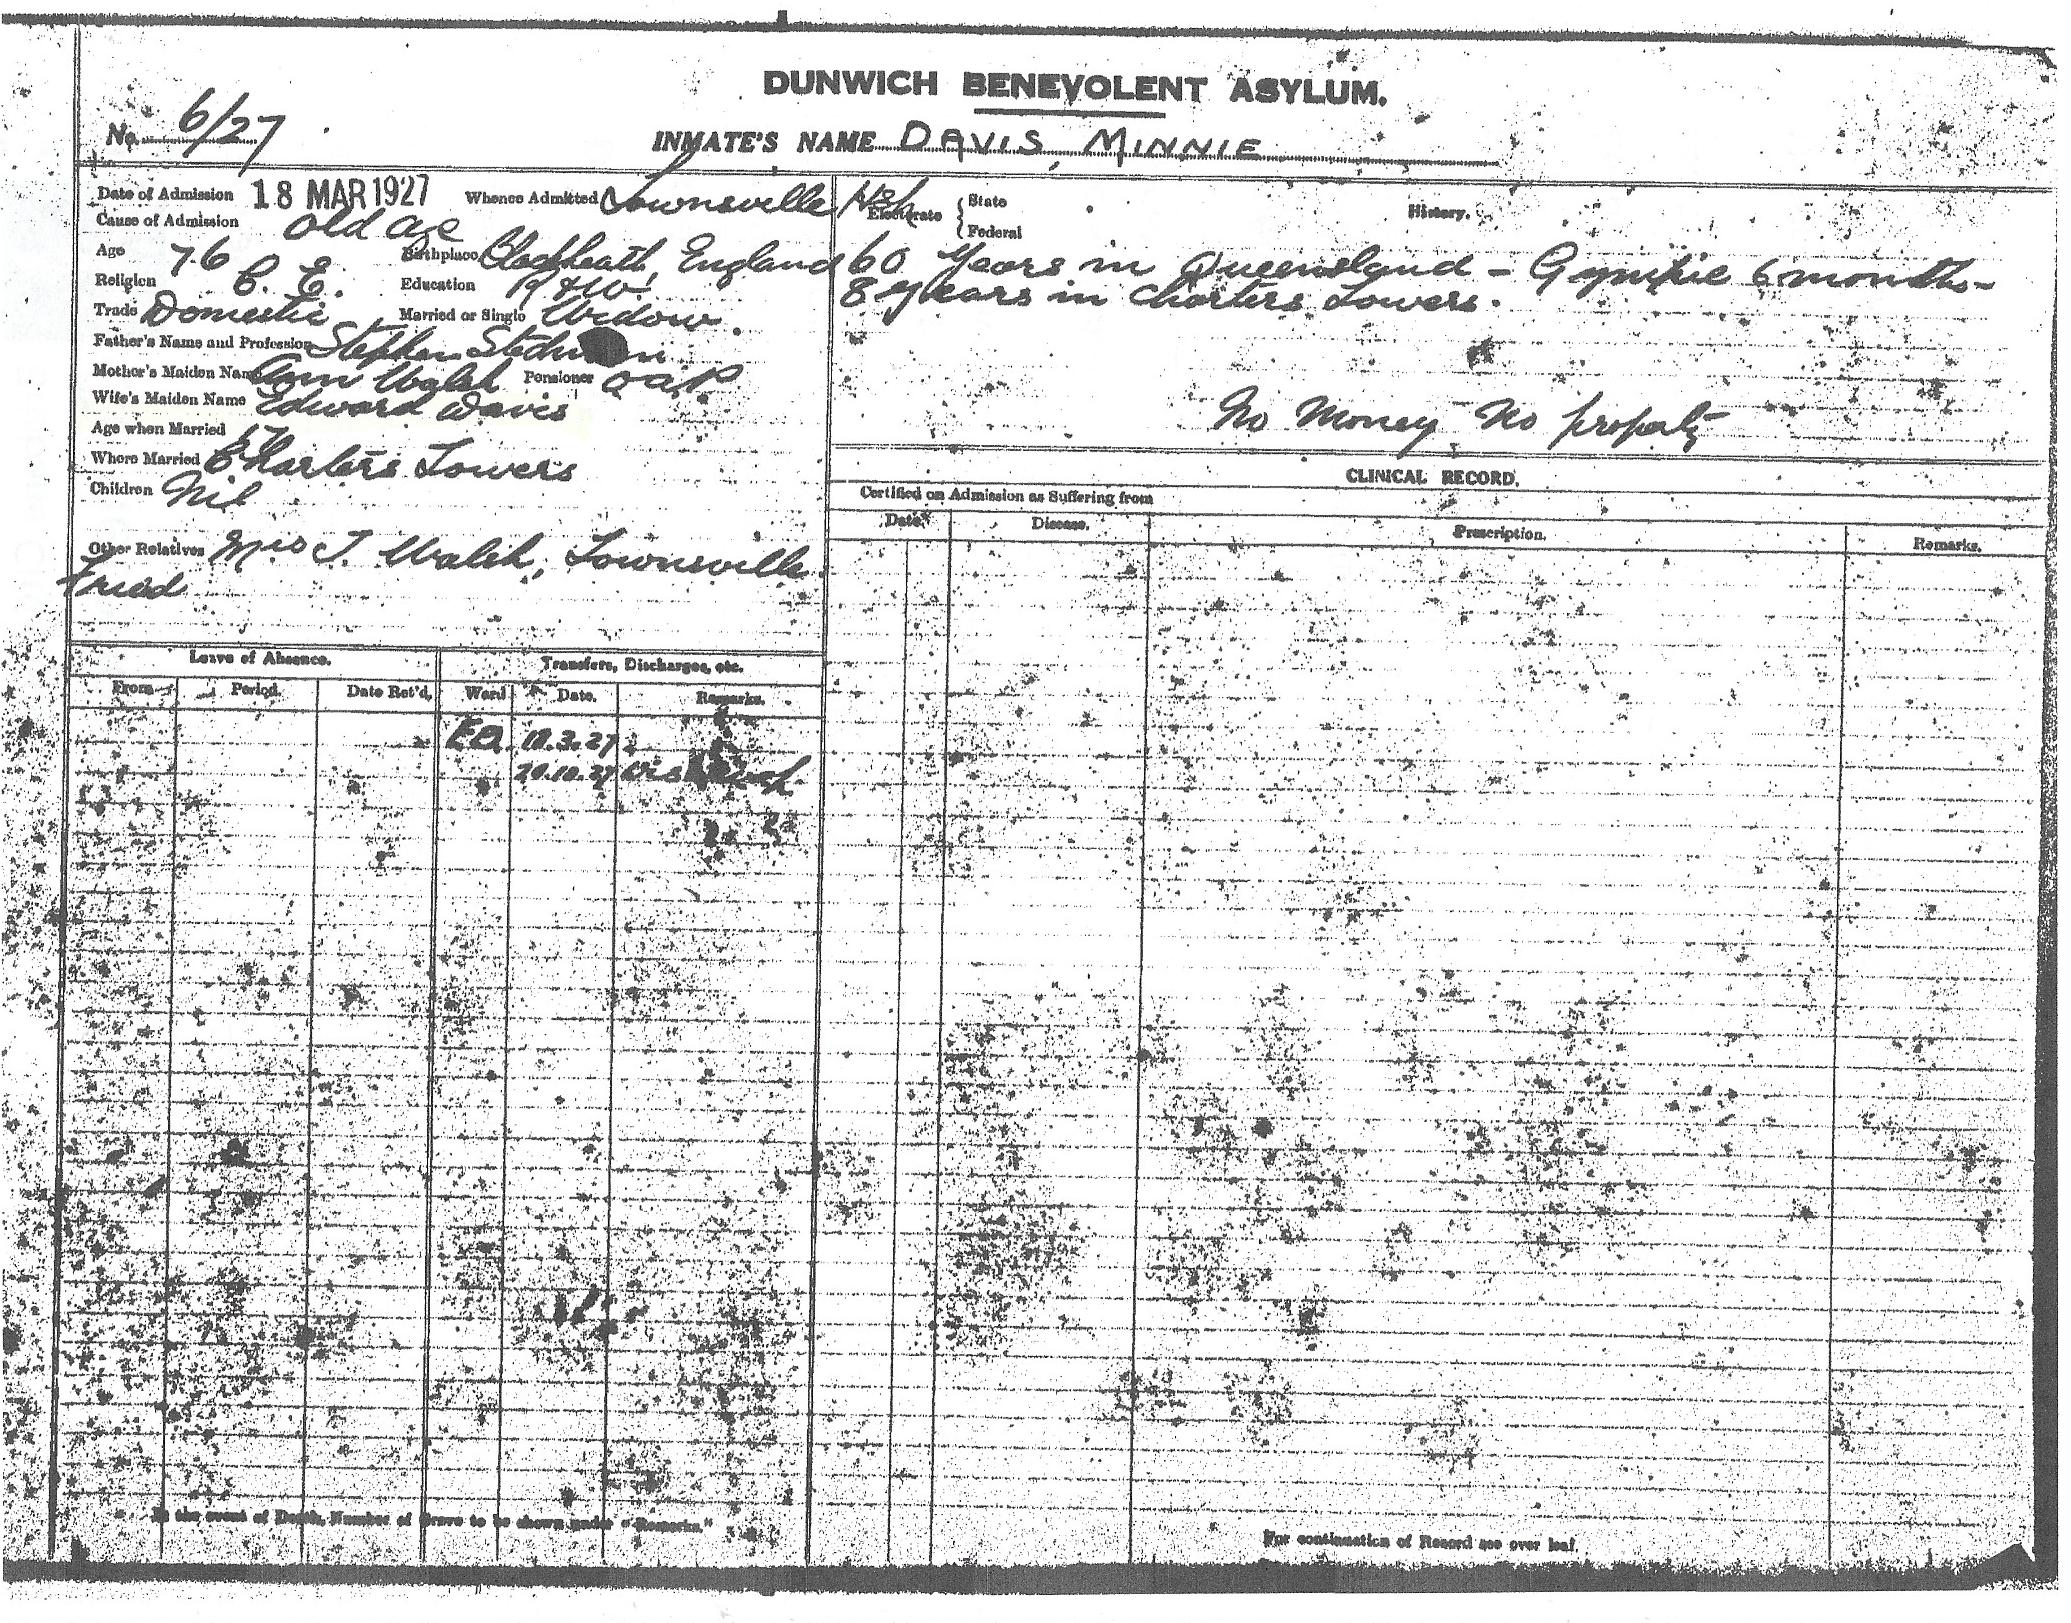 DUNWICH BENEVOLENT ASYLUM.
No. 6/27
INMATE'S NAME DAVIS, MINNIE
Date of Admission 18 MAR 1927 Whence Admitted Townsville Hsp
Cause of Admission Old Age
Age 76 Birthplace Blackheath, England
Religion C. E. Education R & W.
Trade Domestic Married or Single Widow.
Father's Name and Profession Stephen
Mother's Maiden Name Ann Walsh Pensioner OAP
Wife's Maiden Name Edward Davis
Age when Married
Where Married Charters Towers
Children Nil
Other Relatives Mrs T. Walsh, Townsville
Friend
Electorate { State
Federal
History.
60 Years in Queensland - Gympie 6 months -
8 years in Charters Towers.
No Money No property
CLINICAL RECORD.
Certified on Admission as Suffering from
Date. Disease. Prescription. Remarks.
Leave of Absence. Transfers, Discharges, etc.
From Period. Date Ret'd. Ward Date. Remarks.
18.3.27
In the event of Death, Number of Grave to be shown under "Remarks."
For continuation of Record see over leaf.